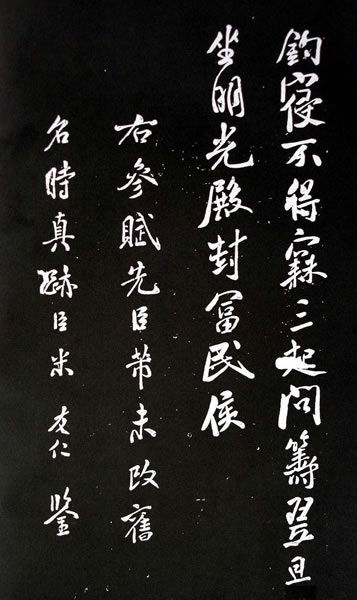 鈞寢不得寐三起問籌翌旦
坐明光殿封冨民侯
右參賦先臣芾未改舊
名時真跡臣米友仁鑒